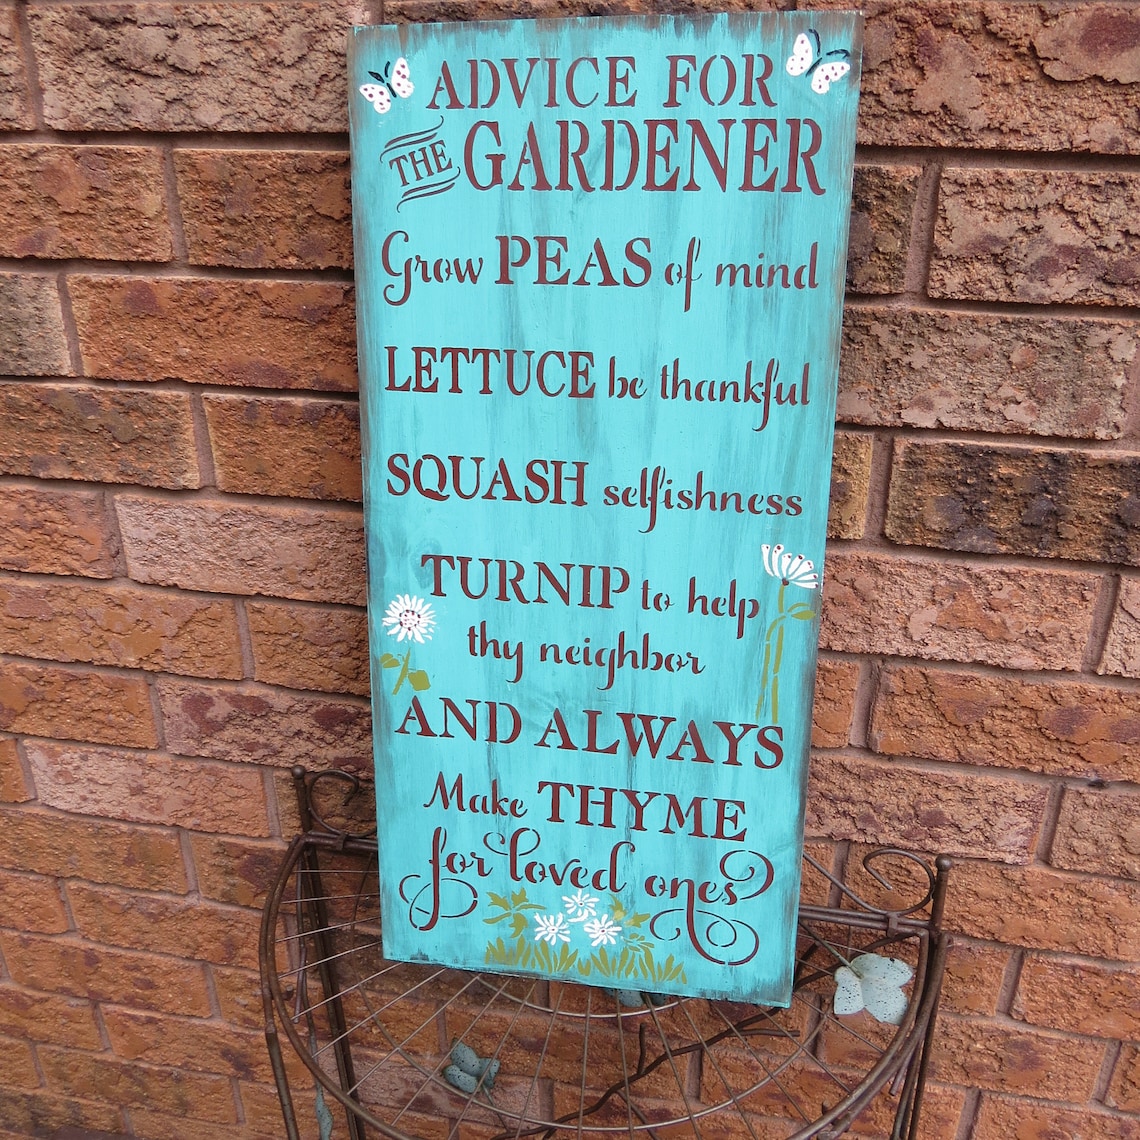 ADVICE FOR
THE GARDENER
Grow PEAS of mind
LETTUCE be thankful
SQUASH selfishness
TURNIP to help
thy neighbor
AND ALWAYS
Make THYME
for loved ones